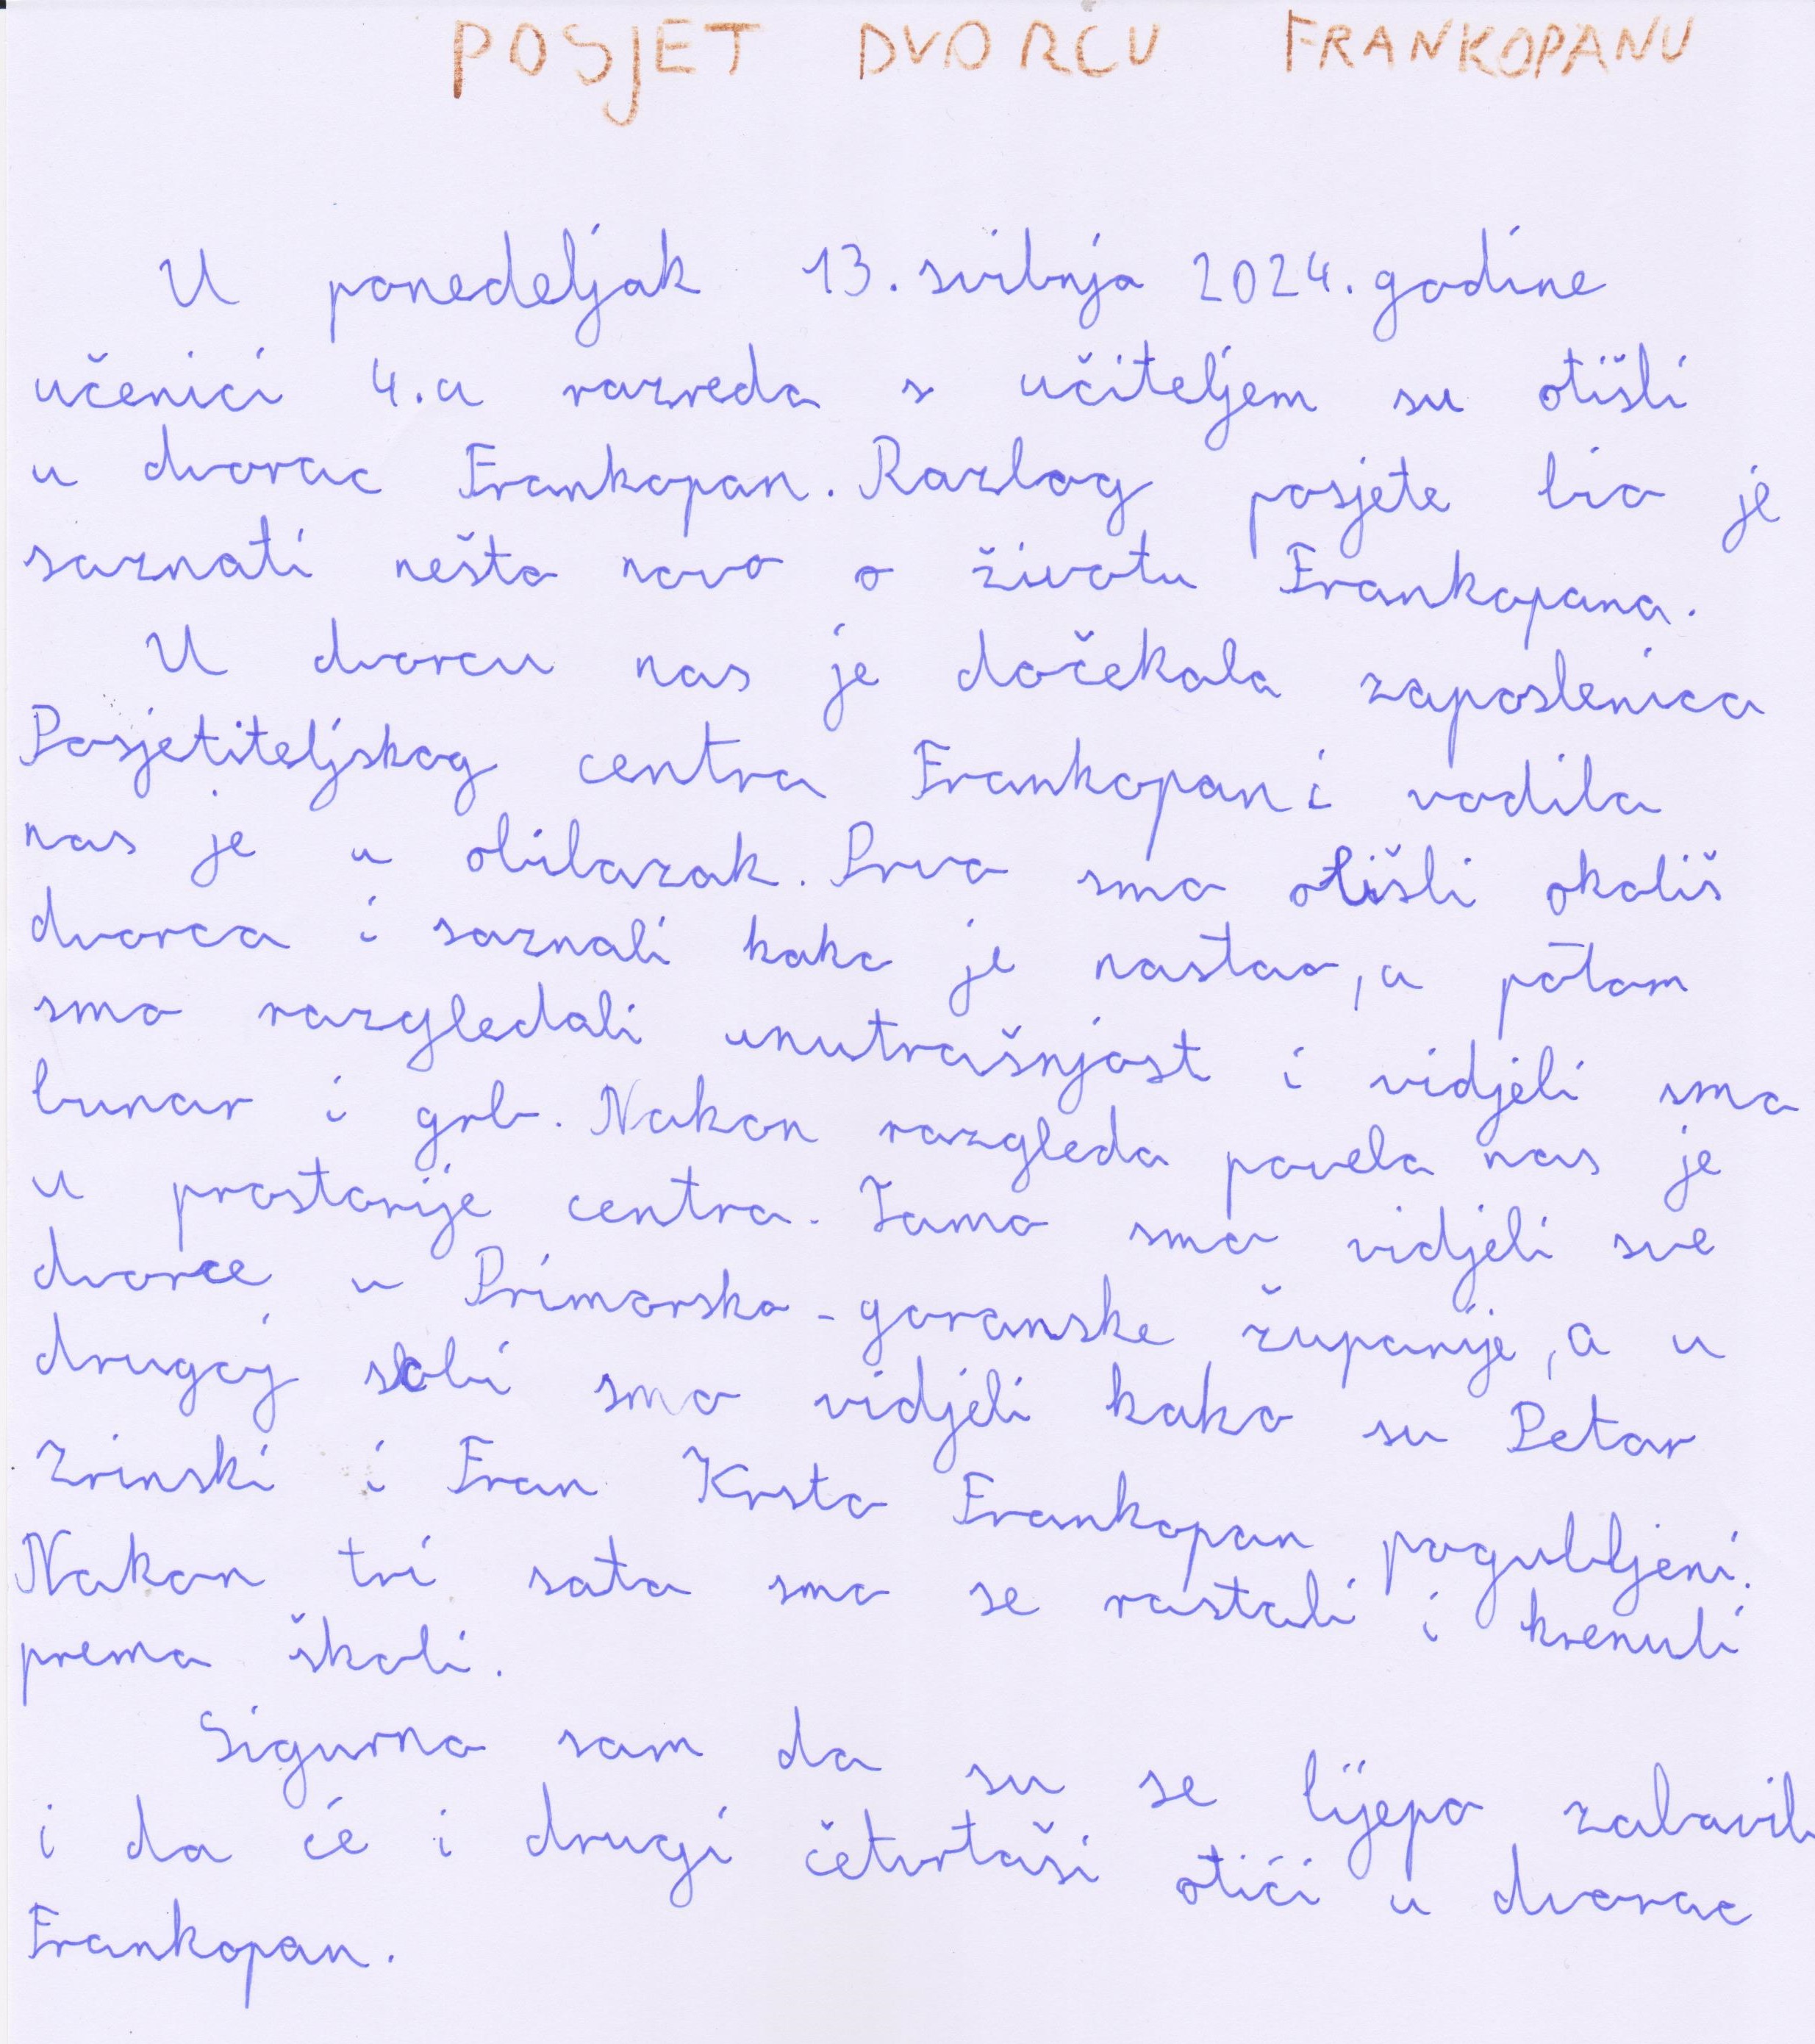 POSJET DVORCU FRANKOPANU
U ponedeljak 13. svibnja 2024. godine
učenici 4.a razreda s učiteljem su otišli
u dvorac Frankopan. Razlog posjete bio je
saznati nešto novo o životu Frankopana.
U dvorcu nas je dočekala zaposlenica
Posjetiteljskog centra Frankopan i vodila
nas je u obilazak. Prvo smo otišli okoliš
dvorca i saznali kako je nastao, a potom
smo razgledali unutrašnjost i vidjeli smo
bunar i grb. Nakon razgleda povela nas je
u prostorije centra. Tamo smo vidjeli sve
dvorce u Primorsko-goranske županije, a u
drugoj sobi smo vidjeli kako su Petar
Zrinski i Fran Krsto Frankopan pogubljeni.
Nakon tri sata smo se rastali i krenuli
prema školi.
Sigurna sam da su se lijepo zabavili
i da će i drugi četvrtaši otići u dvorac
Frankopan.